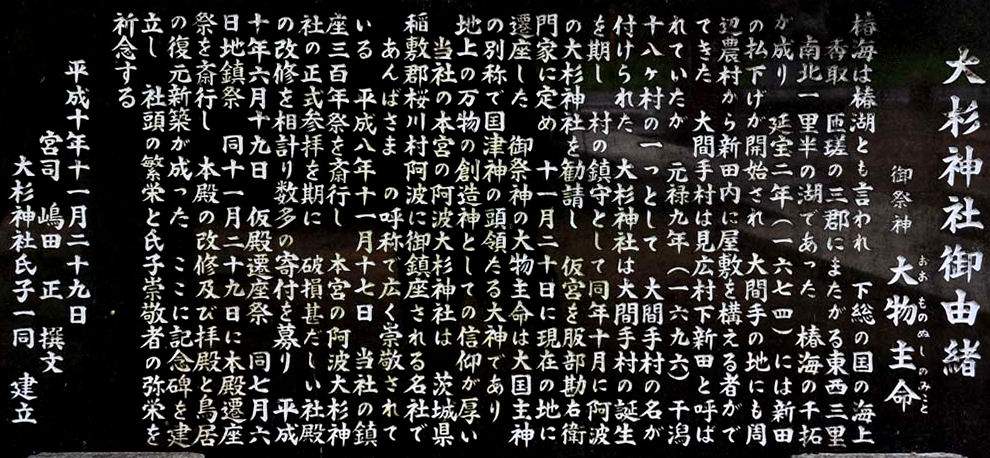 大杉神社御由緒
御祭神 大物主命
おお ものぬしのみこと
椿海は椿湖とも言われ 下総の国の海上
香取 匝瑳の三郡にまたがる東西三里
南北一里半の湖であった 椿海の干拓
が成り 延宝二年(一六七四)には新田
の払下げが開始され 大間手の地にも周
辺農村から新田内に屋敷を構える者がで
てきた 大間手村は見広村下新田と呼ば
れていたが 元禄九年(一六九六)干潟
十八ヶ村の一つとして 大間手村の名が
付けられた 大杉神社は大間手村の誕生
を期し 村の鎮守として同年十月に阿波
の大杉神社を勧請し 仮宮を服部勘右衛
門家に定め 十一月二十日に現在の地に
遷座した 御祭神の大物主命は大国主神
の別称で国津神の頭領たる大神であり
地上の万物の創造神としての信仰が厚い
当社の本宮の阿波大杉神社は 茨城県
稲敷郡桜川村阿波に御鎮座される名社で
あんばさま の呼称で広く崇敬されて
いる 平成八年十一月十七日 当社の鎮
座三百年祭を斎行し 本宮の阿波大杉神
社の正式参拝を期に 破損甚だしい社殿
の改修を相計り数多の寄付を募り 平成
十年六月十九日 仮殿遷座祭 同七月六
日地鎮祭 同十一月二十九日に本殿遷座
祭を斎行し 本殿の改修及び拝殿と鳥居
の復元新築が成った ここに記念碑を建
立し 社頭の繁栄と氏子崇敬者の弥栄を
祈念する
平成十年十一月二十九日
宮司 嶋田 正 撰文
大杉神社氏子一同 建立